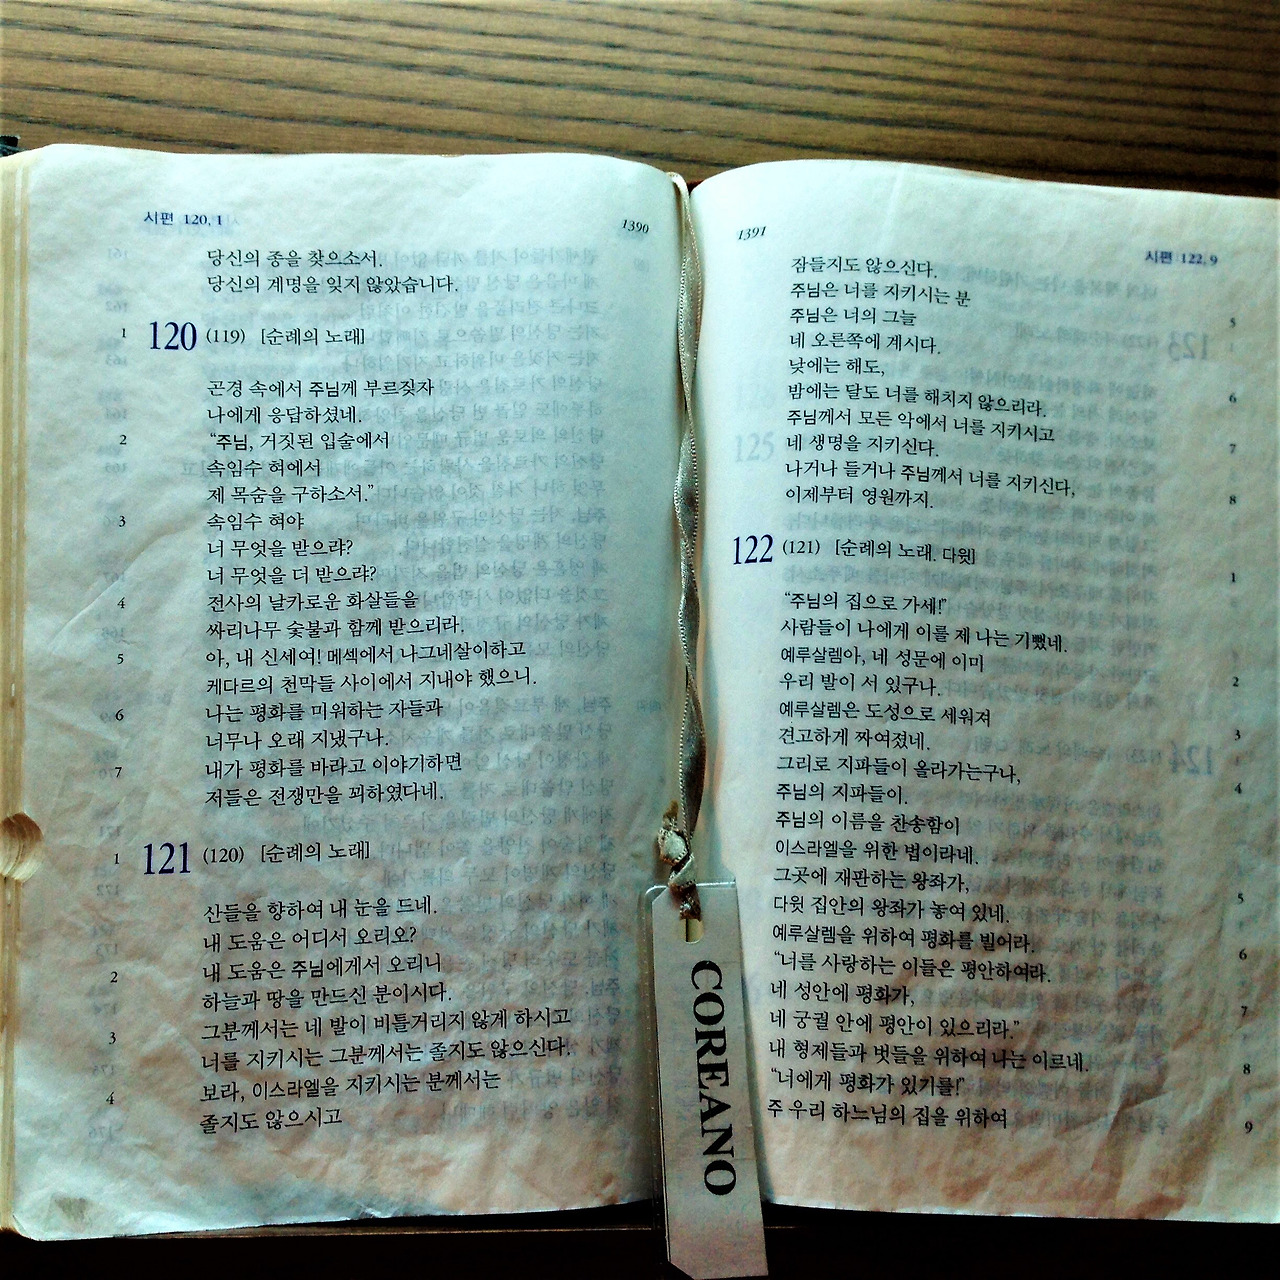 시편 120,1
1390
당신의 종을 찾으소서.
당신의 계명을 잊지 않았습니다.
1 120 (119) [순례의 노래]
곤경 속에서 주님께 부르짖자
나에게 응답하셨네.
2 “주님, 거짓된 입술에서
속임수 혀에서
제 목숨을 구하소서.”
3 속임수 혀야
너 무엇을 받으랴?
너 무엇을 더 받으랴?
4 전사의 날카로운 화살들을
싸리나무 숯불과 함께 받으리라.
5 아, 내 신세여! 메섹에서 나그네살이하고
케다르의 천막들 사이에서 지내야 했으니.
6 나는 평화를 미워하는 자들과
너무나 오래 지냈구나.
7 내가 평화를 바라고 이야기하면
저들은 전쟁만을 꾀하였다네.
1 121 (120) [순례의 노래]
산들을 향하여 내 눈을 드네.
내 도움은 어디서 오리오?
2 내 도움은 주님에게서 오리니
하늘과 땅을 만드신 분이시다.
3 그분께서는 네 발이 비틀거리지 않게 하시고
너를 지키시는 그분께서는 졸지도 않으신다.
4 보라, 이스라엘을 지키시는 분께서는
졸지도 않으시고
COREANO
1391
시편 122,9
잠들지도 않으신다.
주님은 너를 지키시는 분 5
주님은 너의 그늘
네 오른쪽에 계시다.
낮에는 해도, 6
밤에는 달도 너를 해치지 않으리라.
주님께서 모든 악에서 너를 지키시고 7
네 생명을 지키신다.
나거나 들거나 주님께서 너를 지키신다, 8
이제부터 영원까지.
122 (121) [순례의 노래. 다윗] 1
“주님의 집으로 가세!”
사람들이 나에게 이를 제 나는 기뻤네.
예루살렘아, 네 성문에 이미 2
우리 발이 서 있구나.
예루살렘은 도성으로 세워져 3
견고하게 짜여졌네.
그리로 지파들이 올라가는구나, 4
주님의 지파들이.
주님의 이름을 찬송함이
이스라엘을 위한 법이라네.
그곳에 재판하는 왕좌가, 5
다윗 집안의 왕좌가 놓여 있네.
예루살렘을 위하여 평화를 빌어라. 6
“너를 사랑하는 이들은 평안하여라.
네 성안에 평화가, 7
네 궁궐 안에 평안이 있으리라.”
내 형제들과 벗들을 위하여 나는 이르네. 8
“너에게 평화가 있기를!”
주 우리 하느님의 집을 위하여 9